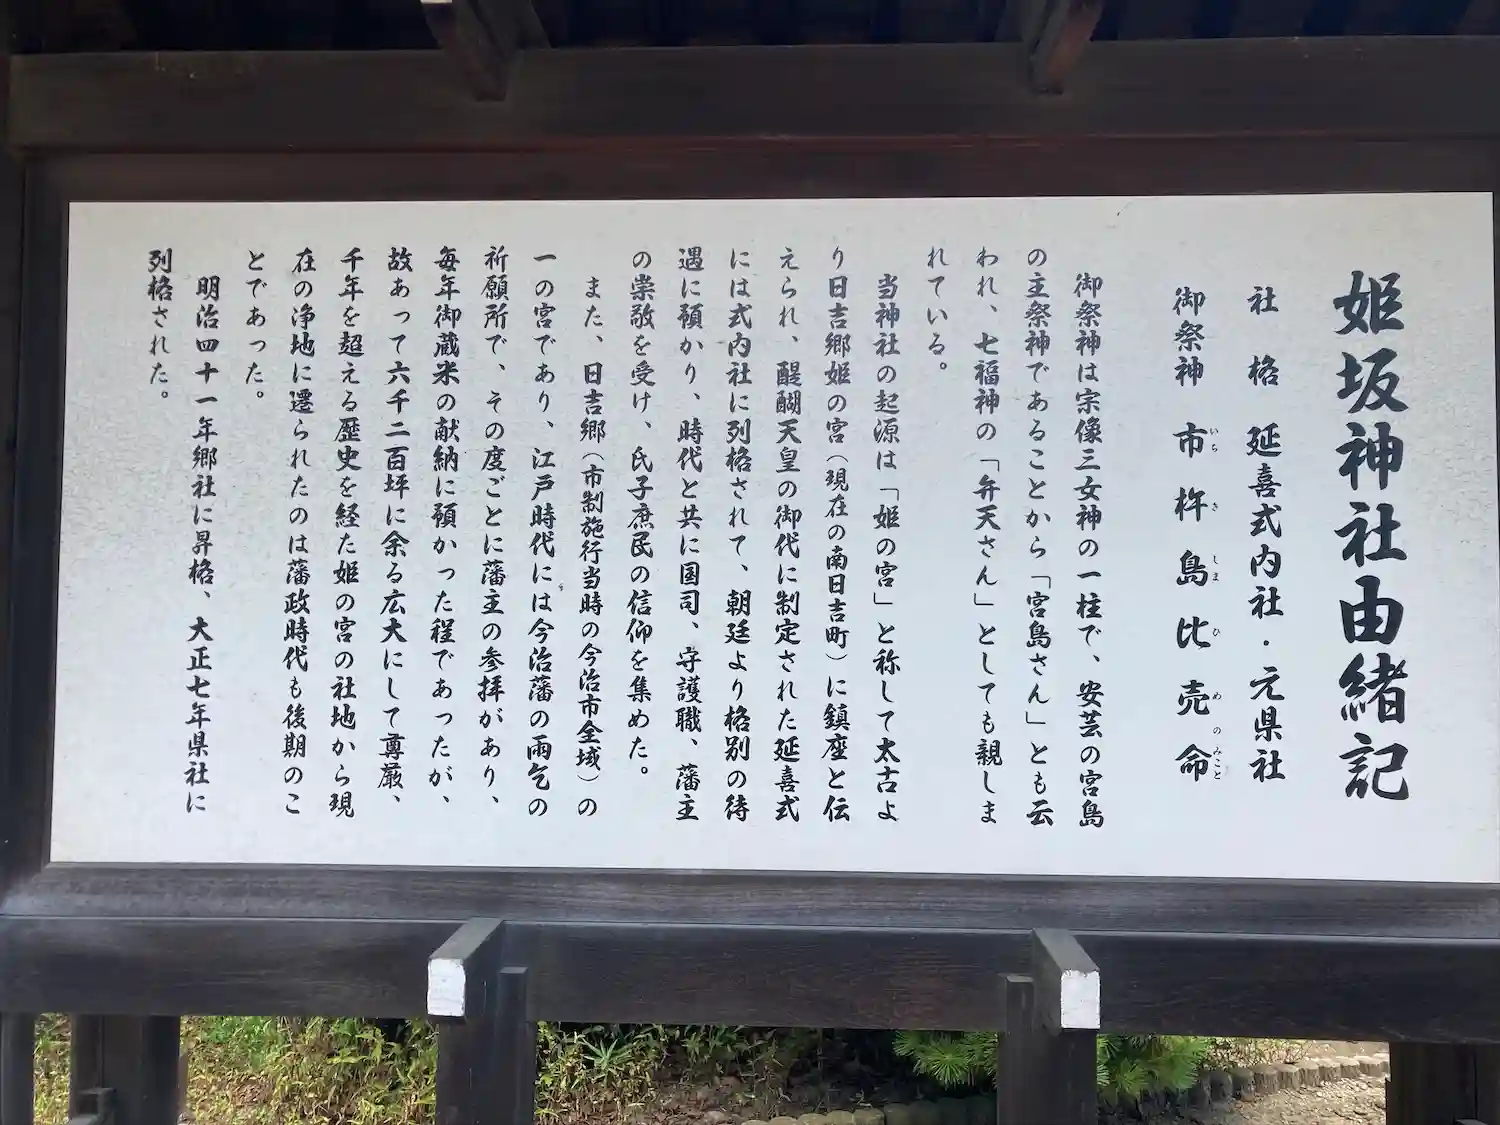 姫坂神社由緒記
社格 延喜式内社・元県社
御祭神 市杵島比売命
いち き しま ひ めの みこと
御祭神は宗像三女神の一柱で、安芸の宮島
の主祭神であることから「宮島さん」とも云
われ、七福神の「弁天さん」としても親しま
れている。
当神社の起源は「姫の宮」と称して太古よ
り日吉郷姫の宮(現在の南日吉町)に鎮座と伝
えられ、醍醐天皇の御代に制定された延喜式
には式内社に列格されて、朝廷より格別の待
遇に預かり、時代と共に国司、守護職、藩主
の崇敬を受け、氏子庶民の信仰を集めた。
また、日吉郷(市制施行当時の今治市全域)の
一の宮であり、江戸時代には今治藩の雨乞の
祈願所で、その度ごとに藩主の参拝があり、
毎年御蔵米の献納に預かった程であったが、
故あって六千二百坪に余る広大にして尊厳、
千年を超える歴史を経た姫の宮の社地から現
在の浄地に遷られたのは藩政時代も後期のこ
とであった。
明治四十一年郷社に昇格、大正七年県社に
列格された。